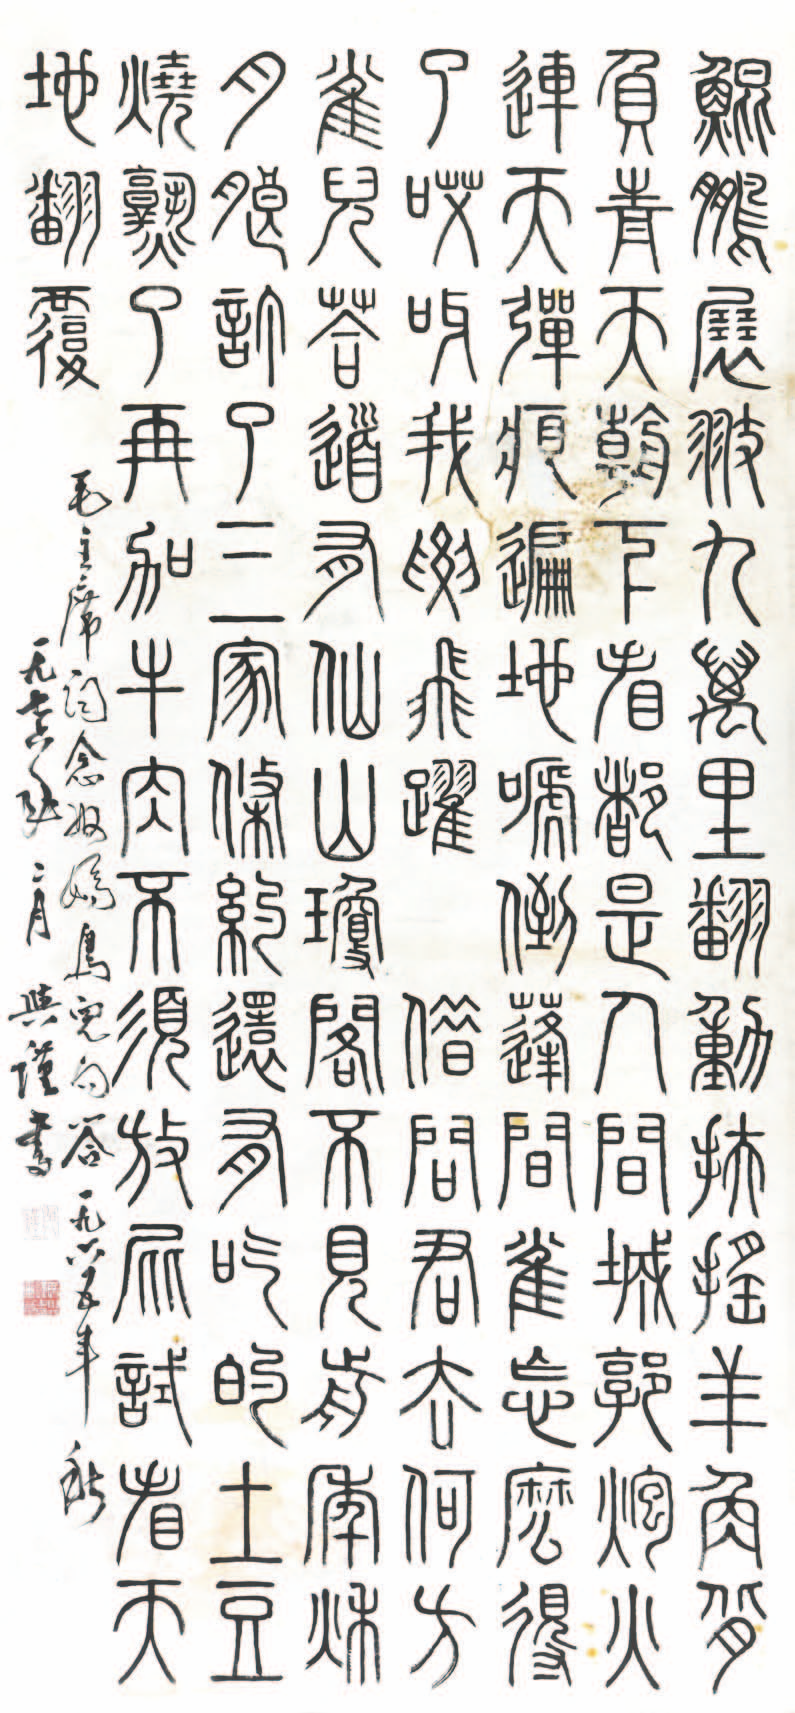 鯤鵬展翅九萬里翻動扶搖羊角背
負青天朝下看都是人間城郭炮火
連天彈痕遍地嚇倒蓬間雀怎麼得
了哎呀我要飛躍 借問君去何方
雀兒答道有仙山瓊閣不見前年秋
月朗訂了三家條約還有吃的土豆
燒熟了再加牛肉不須放屁試看天
地翻覆
毛主席詞念奴嬌鳥兒問答一九六五年秋
一九七六年二月 謹書